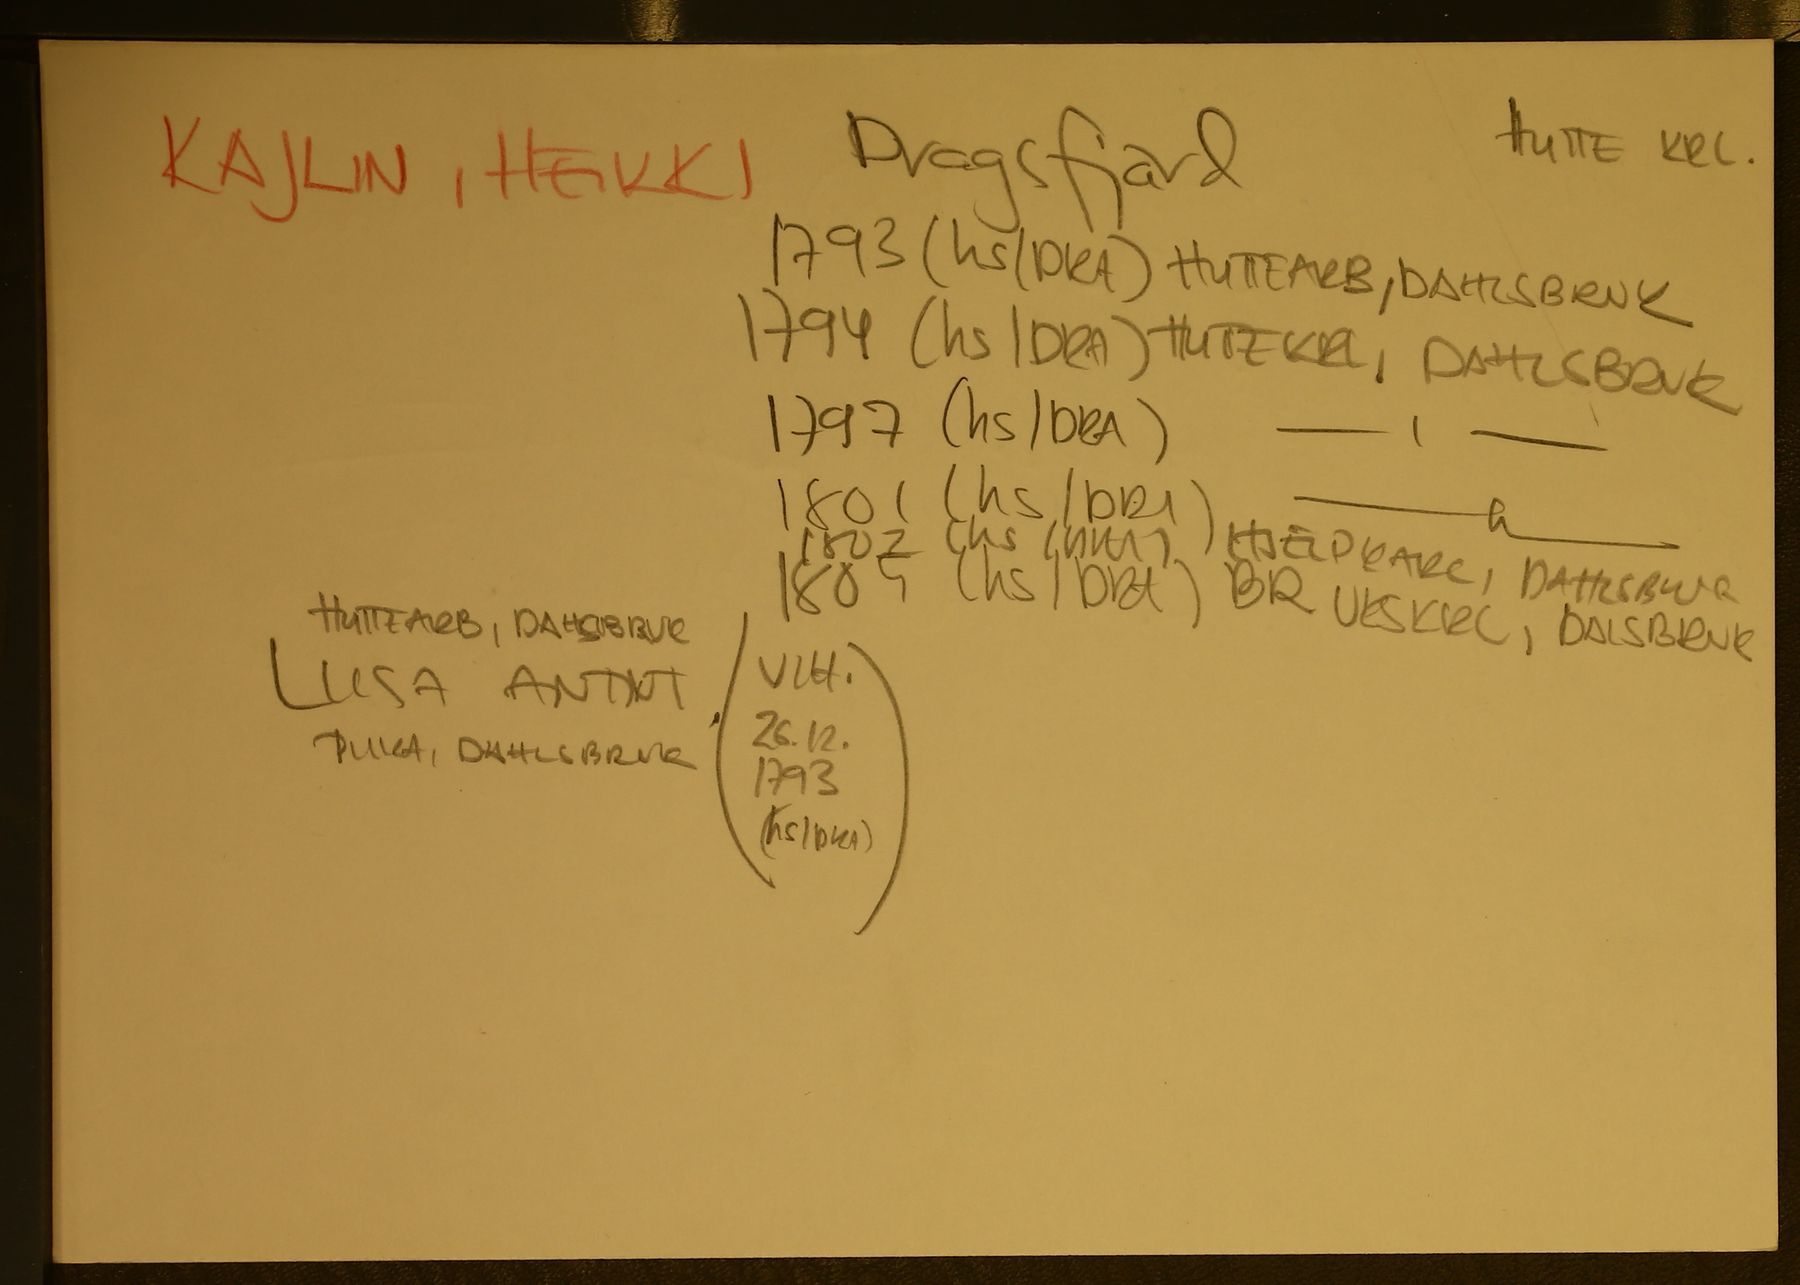 KAJLIN, HEIKKI Dragsfjärd HUTTE KRL.
1793 (hs/DRA) HUTTEARB, DAHLSBRUK
1794 (hs/DRA) HUTTEKRL, DAHLSBRUK
1797 (hs/DRA) — 1 —
1801 (hs/DRA)
1802 (hs/DRA) HJELPKARL, DAHLSBRUK
1805 (hs/DRA) BRUKSKRL, DALSBRUK
HUTTEARB, DAHLSBRUK
LIISA ANTINT
PIIKA, DAHLSBRUK
VIH.
26.12.
1793
(hs/DRA)